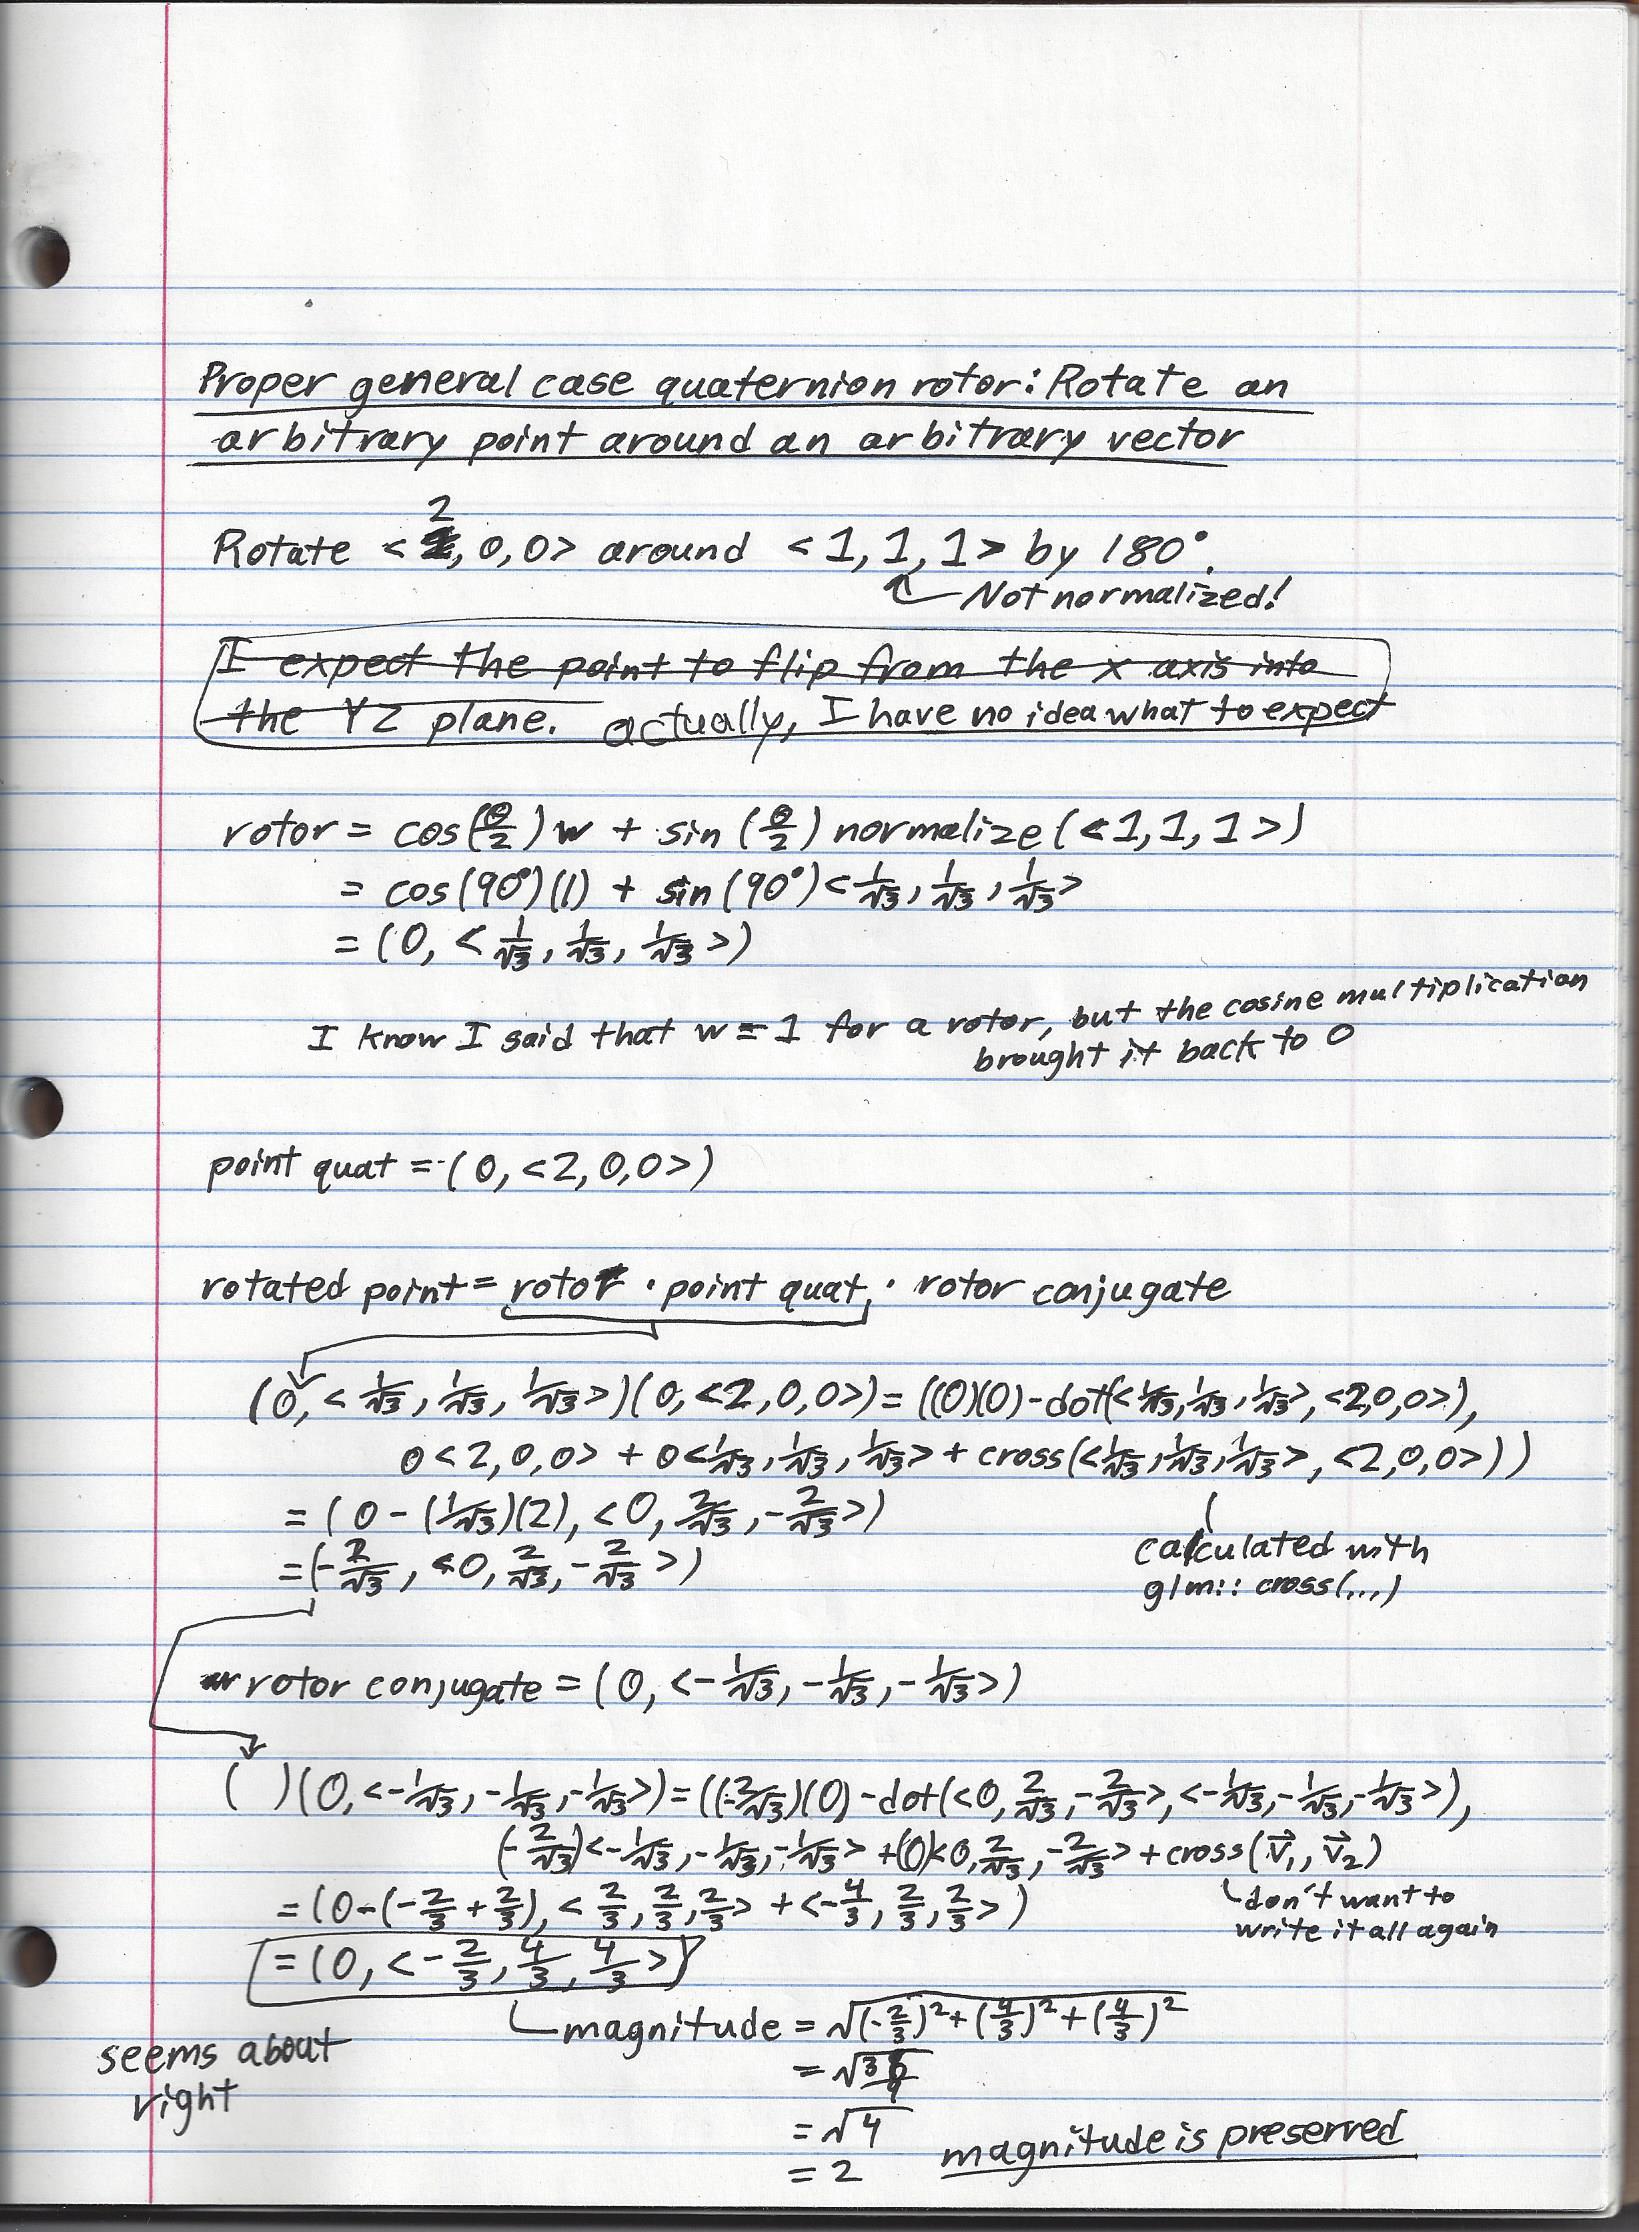 Proper general case quaternion rotor: Rotate an
arbitrary point around an arbitrary vector
2
Rotate < , 0, 0> around <1, 1, 1> by 180°.
Not normalized!
I expect the point to flip from the x axis into
the YZ plane. actually, I have no idea what to expect
rotor = cos(θ/2) w + sin(θ/2) normalize(<1, 1, 1>)
= cos(90°)(1) + sin(90°)<1/√3, 1/√3, 1/√3>
= (0, <1/√3, 1/√3, 1/√3>)
I know I said that w = 1 for a rotor, but the cosine multiplication
brought it back to 0
point quat = (0, <2, 0, 0>)
rotated point = rotor · point quat · rotor conjugate
(0, <1/√3, 1/√3, 1/√3>)(0, <2, 0, 0>) = ((0)(0) - dot(<1/√3, 1/√3, 1/√3>, <2,0,0>),
0<2, 0, 0> + 0<1/√3, 1/√3, 1/√3> + cross(<1/√3, 1/√3, 1/√3>, <2,0,0>))
= (0 - (1/√3)(2), <0, 2/√3, -2/√3>)
= (-2/√3, <0, 2/√3, -2/√3>)
calculated with
glm::cross(...)
rotor conjugate = (0, <-1/√3, -1/√3, -1/√3>)
( )(0, <-1/√3, -1/√3, -1/√3>) = ((-2/√3)(0) - dot(<0, 2/√3, -2/√3>, <-1/√3, -1/√3, -1/√3>),
(-2/√3)<-1/√3, -1/√3, -1/√3> + (0)<0, 2/√3, -2/√3> + cross(v⃗₁, v⃗₂)
= (0 - (-2/3 + 2/3), <2/3, 2/3, 2/3> + <-4/3, 2/3, 2/3>)
don't want to
write it all again
= (0, <-2/3, 4/3, 4/3>)
magnitude = √((-2/3)² + (4/3)² + (4/3)²)
seems about
right
= √(36/9)
= √4
= 2 magnitude is preserved